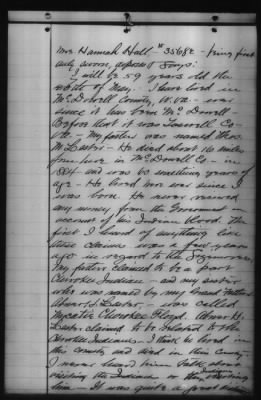 Mrs. Hannah Hall # 35682 - being first
duly sworn, deposes & says:
I will be 59 years old the
of May. I have lived in
McDowell County, W. Va - ever
since it has been McDowell
Before that it was Tazewell Co
Va. - My father was named Thos.
M. Lester - He died about 16 miles
from here in McDowell Co - in
1884 - and was 60 something years of
age - He lived here ever since I
was born. He never received
any money from the Government on
account of his Indian blood. The
first I heard of anything like
these claims was a few years
ago in regard to the Sizemores
My father claimed to be a part
Cherokee Indian - and my
who was named by my Grand father
Abner H. Lester - was called
Cherokee Floyd. Abner H.
Lester claimed to be related to the
Cherokee Indians. I think he lived in
this county and died in this County -
I never heard him talk about
visiting the Indians or they visiting
him - It was quite a great